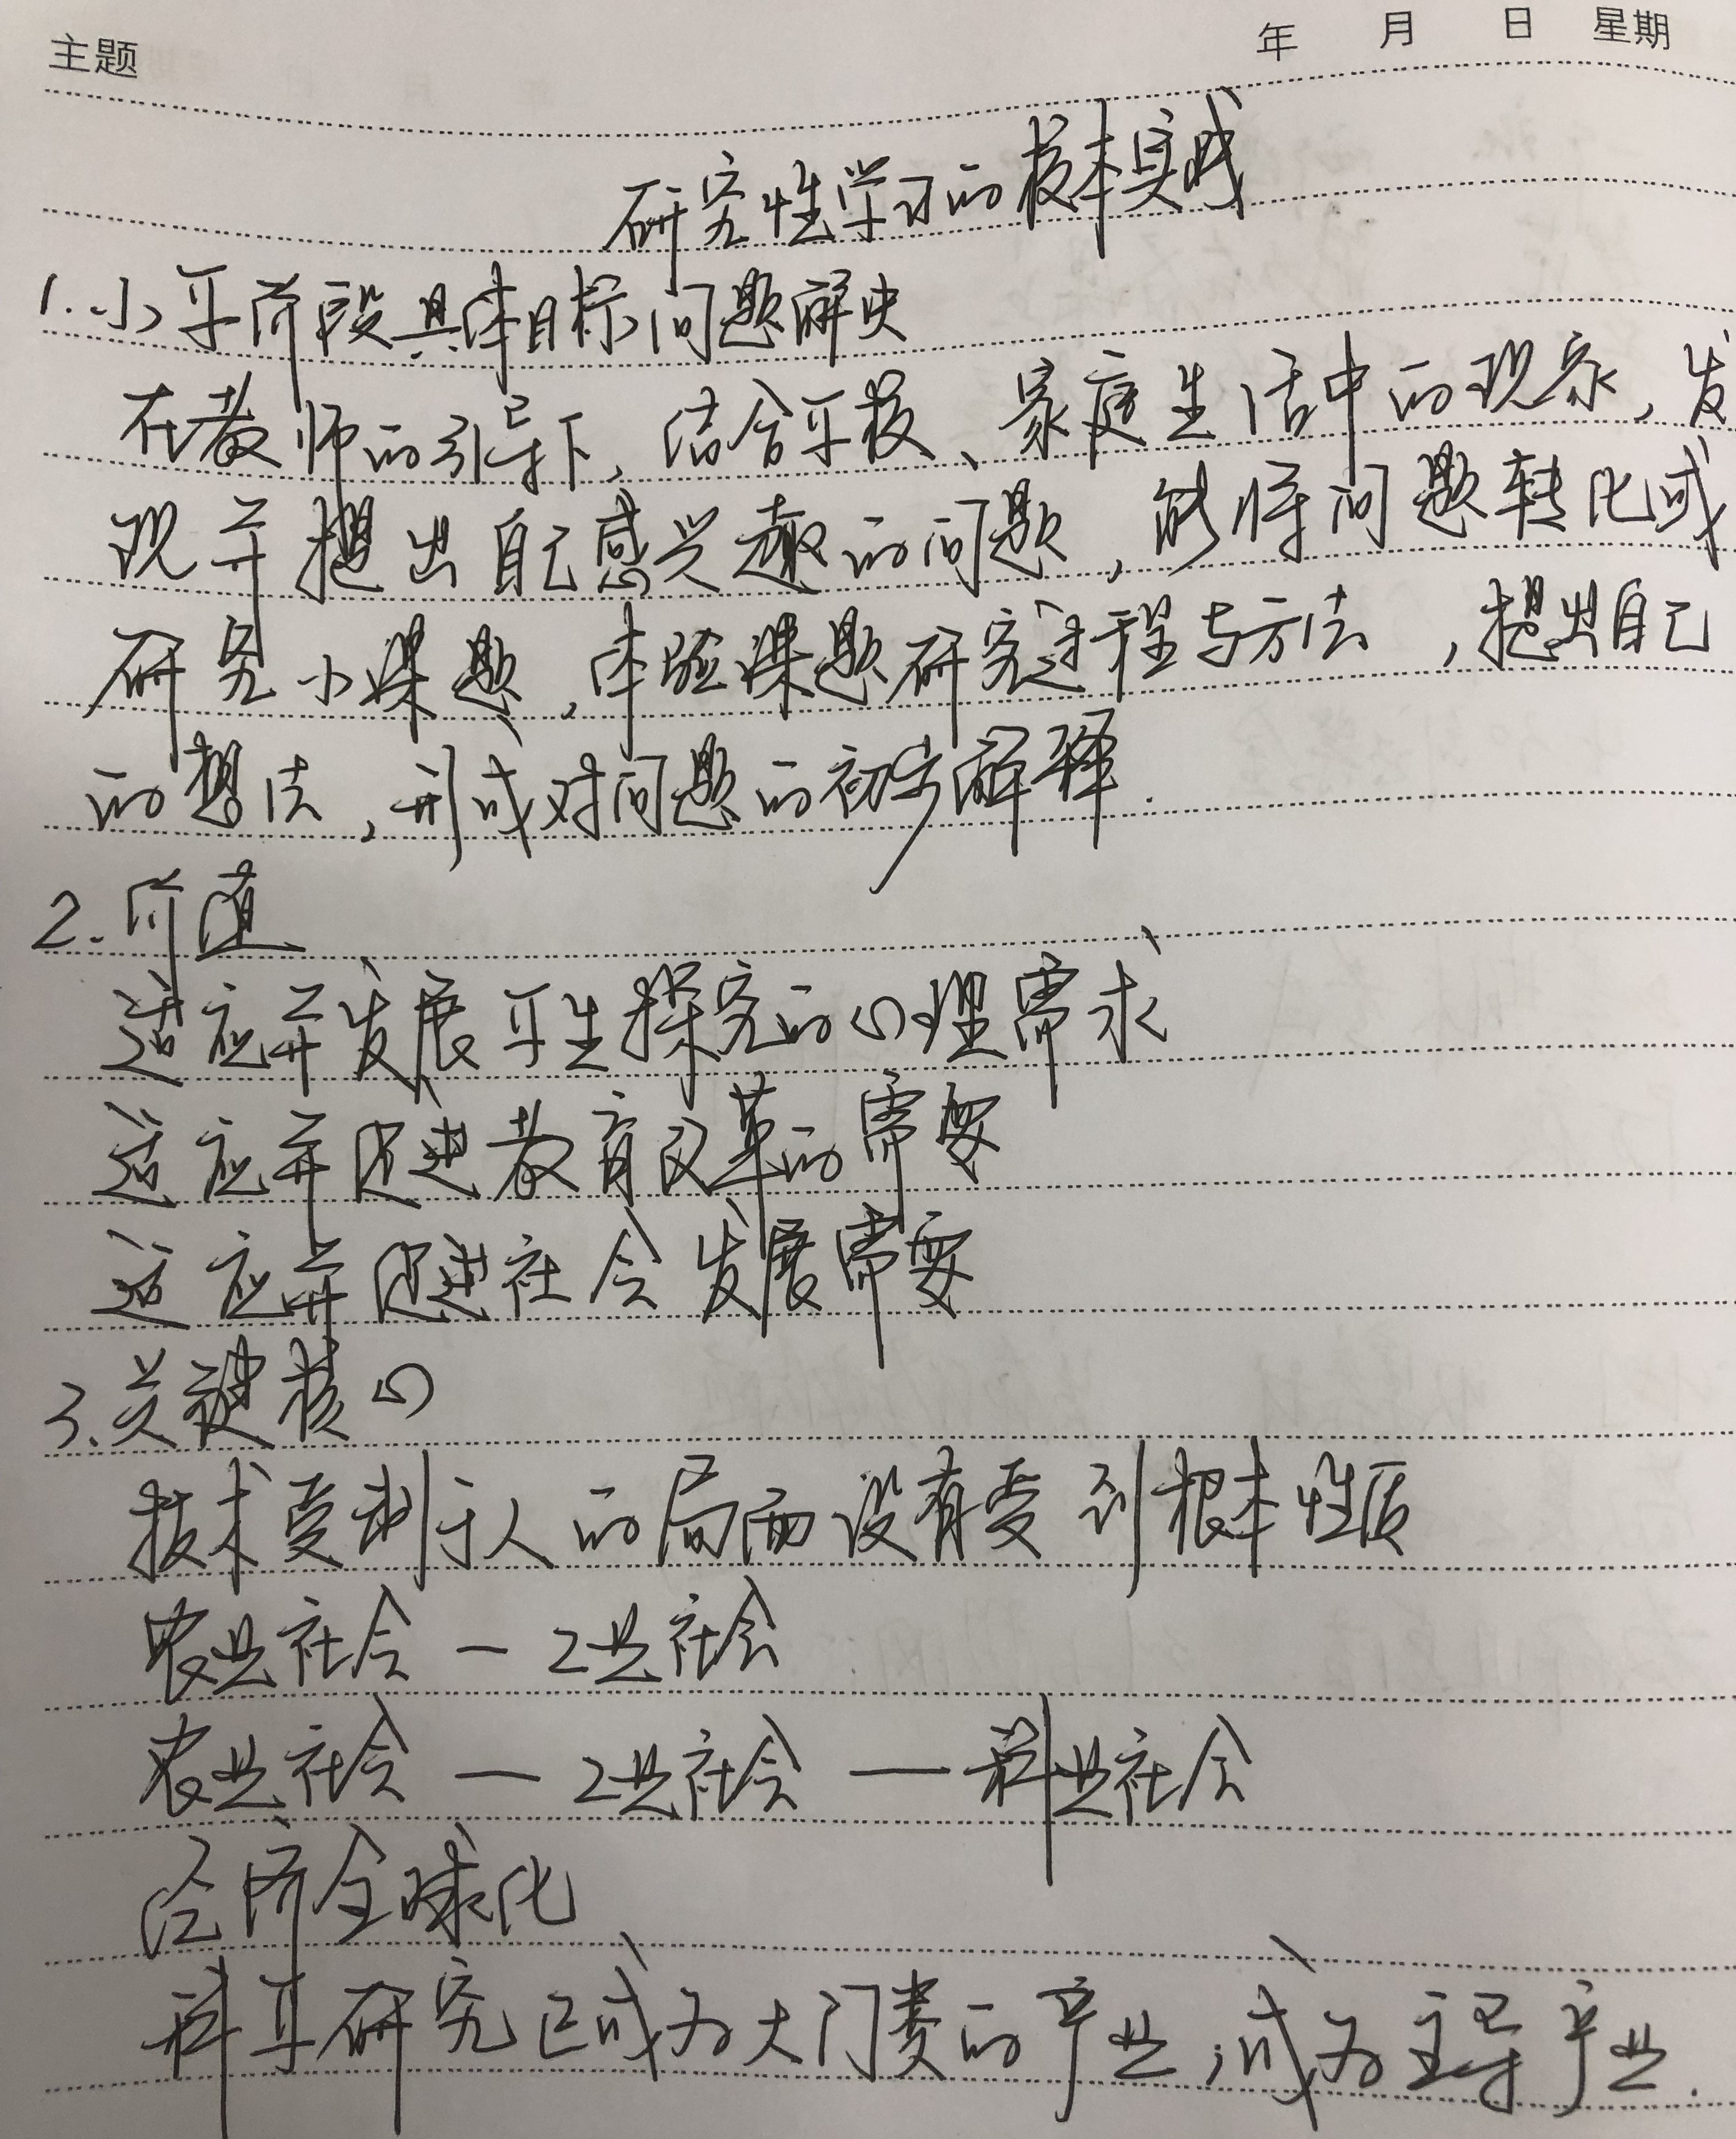 主题 年 月 日 星期
研究性学习的校本实践
1.小学阶段具体目标问题解决
在教师的引导下，结合学校、家庭生活中的现象，发
现并提出自己感兴趣的问题，能将问题转化成
研究小课题，体验课题研究过程与方法，提出自己
的想法，形成对问题的初步解释.
2.价值
适应并发展学生探究的心理需求
适应并促进教育改革的需要
适应并促进社会发展需要
3.关键核心
技术受制于人的局面没有受到根本性质
农业社会一工业社会
农业社会一工业社会一科业社会
经济全球化
科学研究已成为大门类的产业,成为主导产业.